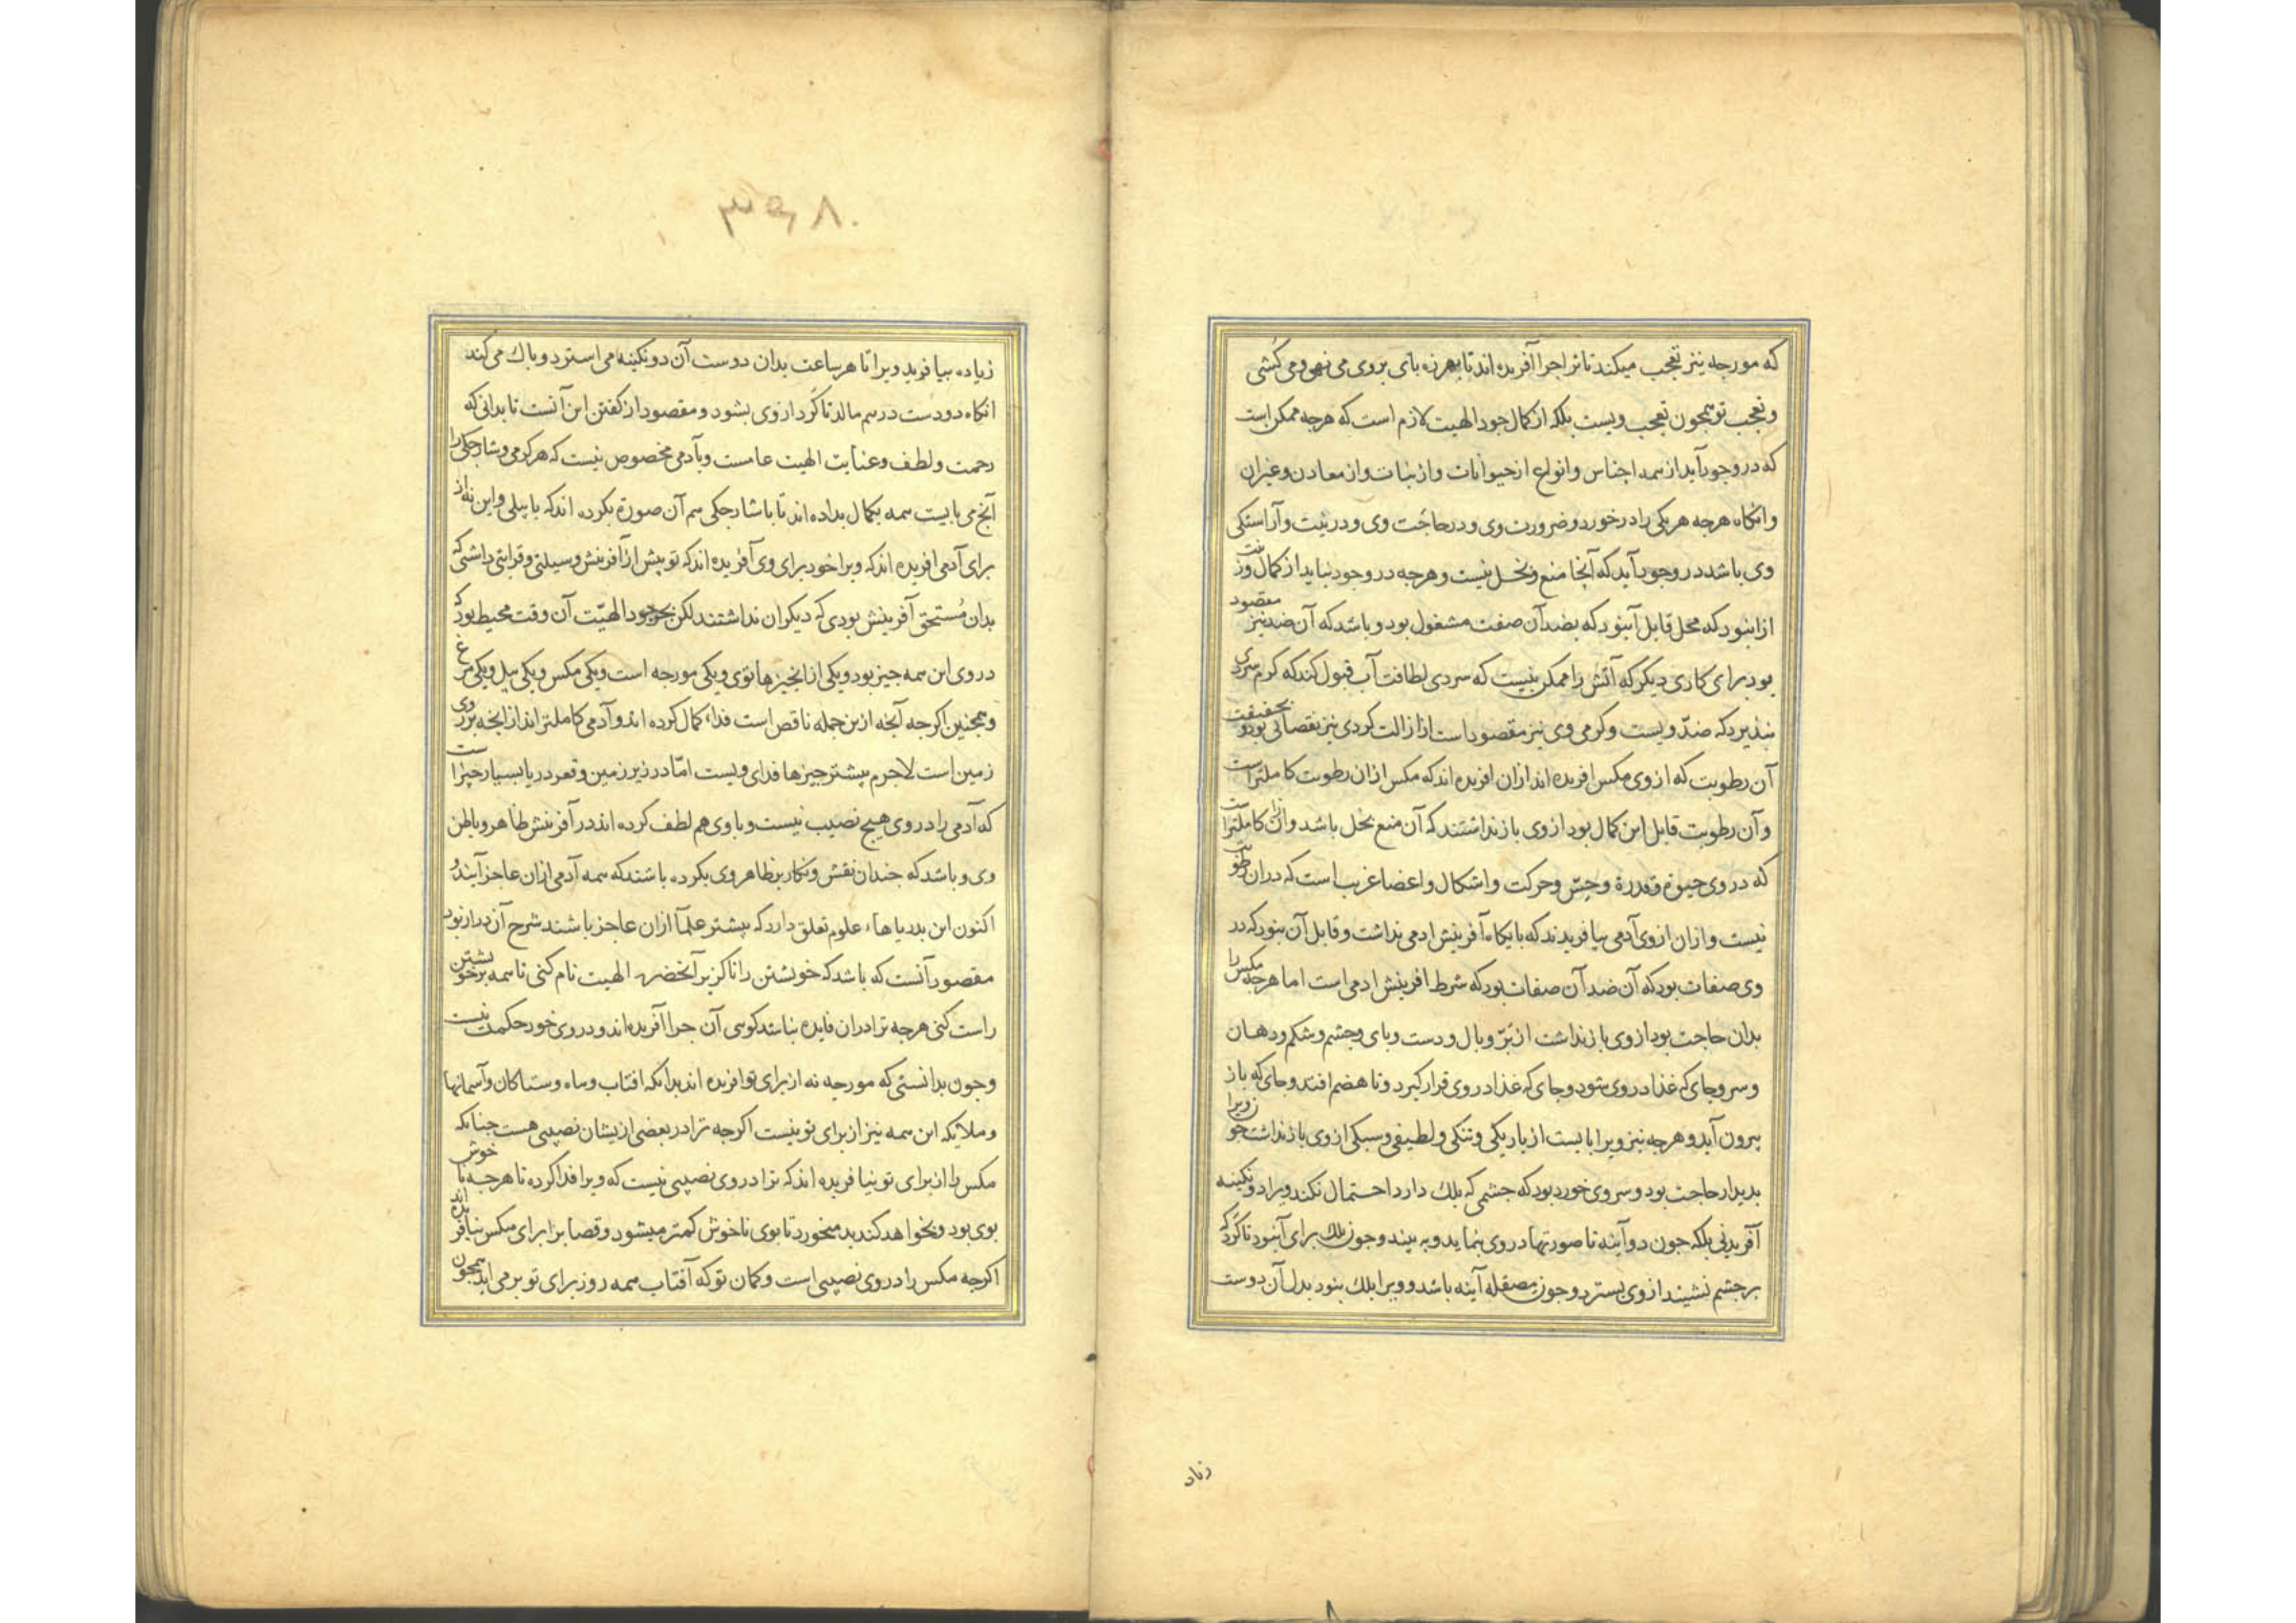 که مورجه نیز تعجب میکند تا ترا جرا آفریده اند تا بهرزه بای بروی می نهی و می کشی
و تعجب تو همجون تعجب ویست بلکه از کمال جود الهیت لازم است که هرجه ممکن است
که در وجود آید از همه اجناس و انواع از حیوانات و از نبات و از معادن و غیر ان
و انکاه هرجه هر یکی را در خورد و ضرورت وی و در حاجت وی و در زینت و آراستکی
وی باشد در وجود آید که آنجا منع و بخل نیست و هرجه در وجود نیاید از کمال و زینت
از ان بود که محل قابل آن نبود که بضد آن صفت مشغول بود و باشد که آن ضد نیز مقصود
بود برای کاری دیکر که آتش را ممکن نیست که سردی لطافت آب قبول کند که کرم سردی
نپذیرد که ضد ویست و کرمی وی نیز مقصود است از ازالت کردی نیز نقصانی بود و بحقیقت
آن رطوبت که از وی مکس افریده اند از ان افریده اند که مکس از ان رطوبت کاملتر است
و آن رطوبت قابل این کمال بود از وی باز نداشتند که آن منع بخل باشد و از ان کاملتر است
که در وی حیوة و قدرة و حس و حرکت و اشکال و اعضا غریب است که در ان رطوبت
نیست و از ان از وی آدمی نیافریدند که بایکاه آفرینش ادمی نداشت و قابل آن نبود که در
وی صفات بود که آن ضد آن صفات بود که شرط افرینش ادمی است اما هرجه مکس را
بدان حاجت بود از وی باز نداشت از پر و بال و دست و بای و جشم و شکم و دهان
و سر و جای که غذا در وی شود و جای که غذا در وی قرار کیرد و تا هضم افتد و جای که باز
بیرون آید و هرجه نیز ویرا بایست از باریکی و تنکی و لطیفی و سبکی از وی باز نداشت جون ویرا
بدیدار حاجت بود و سر وی خورد بود که جشمی که بلک دارد احتمال نکند ویرا دو نکینه
آفرید نی بلکه جون دو آینه تا صورتها در وی بنماید و به بیند و جون بلک برای آن بود تا کرد که
بر جشم نشیند از وی بسترد و جون مصقله آینه باشد و ویرا بلک نبود بدل آن دو دست
زیاد
۳۶۸
زیاده بیافرید ویرا تا هر ساعت بدان دو دست آن دو نکینه می استرد و باک می کند
انکاه دو دست در هم مالد تا کرد از وی بشود و مقصود از کفتن این آنست تا بدانی که
رحمت و لطف و عنایت الهیت عامست و بآدمی مخصوص نیست که هر کرمی و سارخکی را
آنج می بایست همه بکمال بداده اند تا با سارخکی هم آن صورة بکرده اند که با پیلی و این نه از
برای آدمی افریده اند که ویرا خود برای وی آفریده اند که تو پیش از آفرینش وسیلتی و قرابتی داشتی که
بدان مستحق آفرینش بودی که دیکران نداشتند لکن بحر جود الهیت آن وقت محیط بود که
در وی این همه جیز بود و یکی از انجیزها توی و یکی مورجه است و یکی مکس و یکی پیل و یکی مرغ
و همجنین اکرجه آنجه از ین جمله ناقص است فداء کمال کرده اند و آدمی کاملتر اند از انجه بر روی
زمین است لاجرم بیشتر جیزها فدای ویست اما در زیر زمین و قعر دریا بسیار چیز است
که آدمی را در وی هیج نصیب نیست و با وی هم لطف کرده اند در آفرینش ظاهر و باطن
وی و باشد که جندان نقش و نکار بر ظاهر وی بکرده باشند که همه آدمی از ان عاجز آیند و
اکنون این بدریاهاء علوم تعلق دارد که بیشتر علما از ان عاجز باشند شرح آن دراز بود
مقصود آنست که باشد که خویشتن را ناکزیر آن حضرت الهیت نام کنی تا همه بر خویشتن
راست کنی هرجه ترا در ان فایده نباشد کوئی آن جرا آفریده اند و در وی خود حکمت نیست
و جون بدانستی که مورجه نه از برای تو افریده اند بدانکه افتاب و ماه و ستارکان و آسمانها
و ملایکه این همه نیز از برای تو نیست اکرجه ترا در بعضی از یشان نصیبی هست جنانکه
مکس را از برای تو نیافریده اند که ترا در وی نصیبی نیست که ویرا فدا کرده تا هرجه نا خوش
بوی بود و بخواهد کندید میخورد تا بوی ناخوش کمتر میشود و قصاب را برای مکس نیافریده اند
اکرجه مکس را در وی نصیبی است و کمان تو که آفتاب همه روز برای تو بر می اید همجون